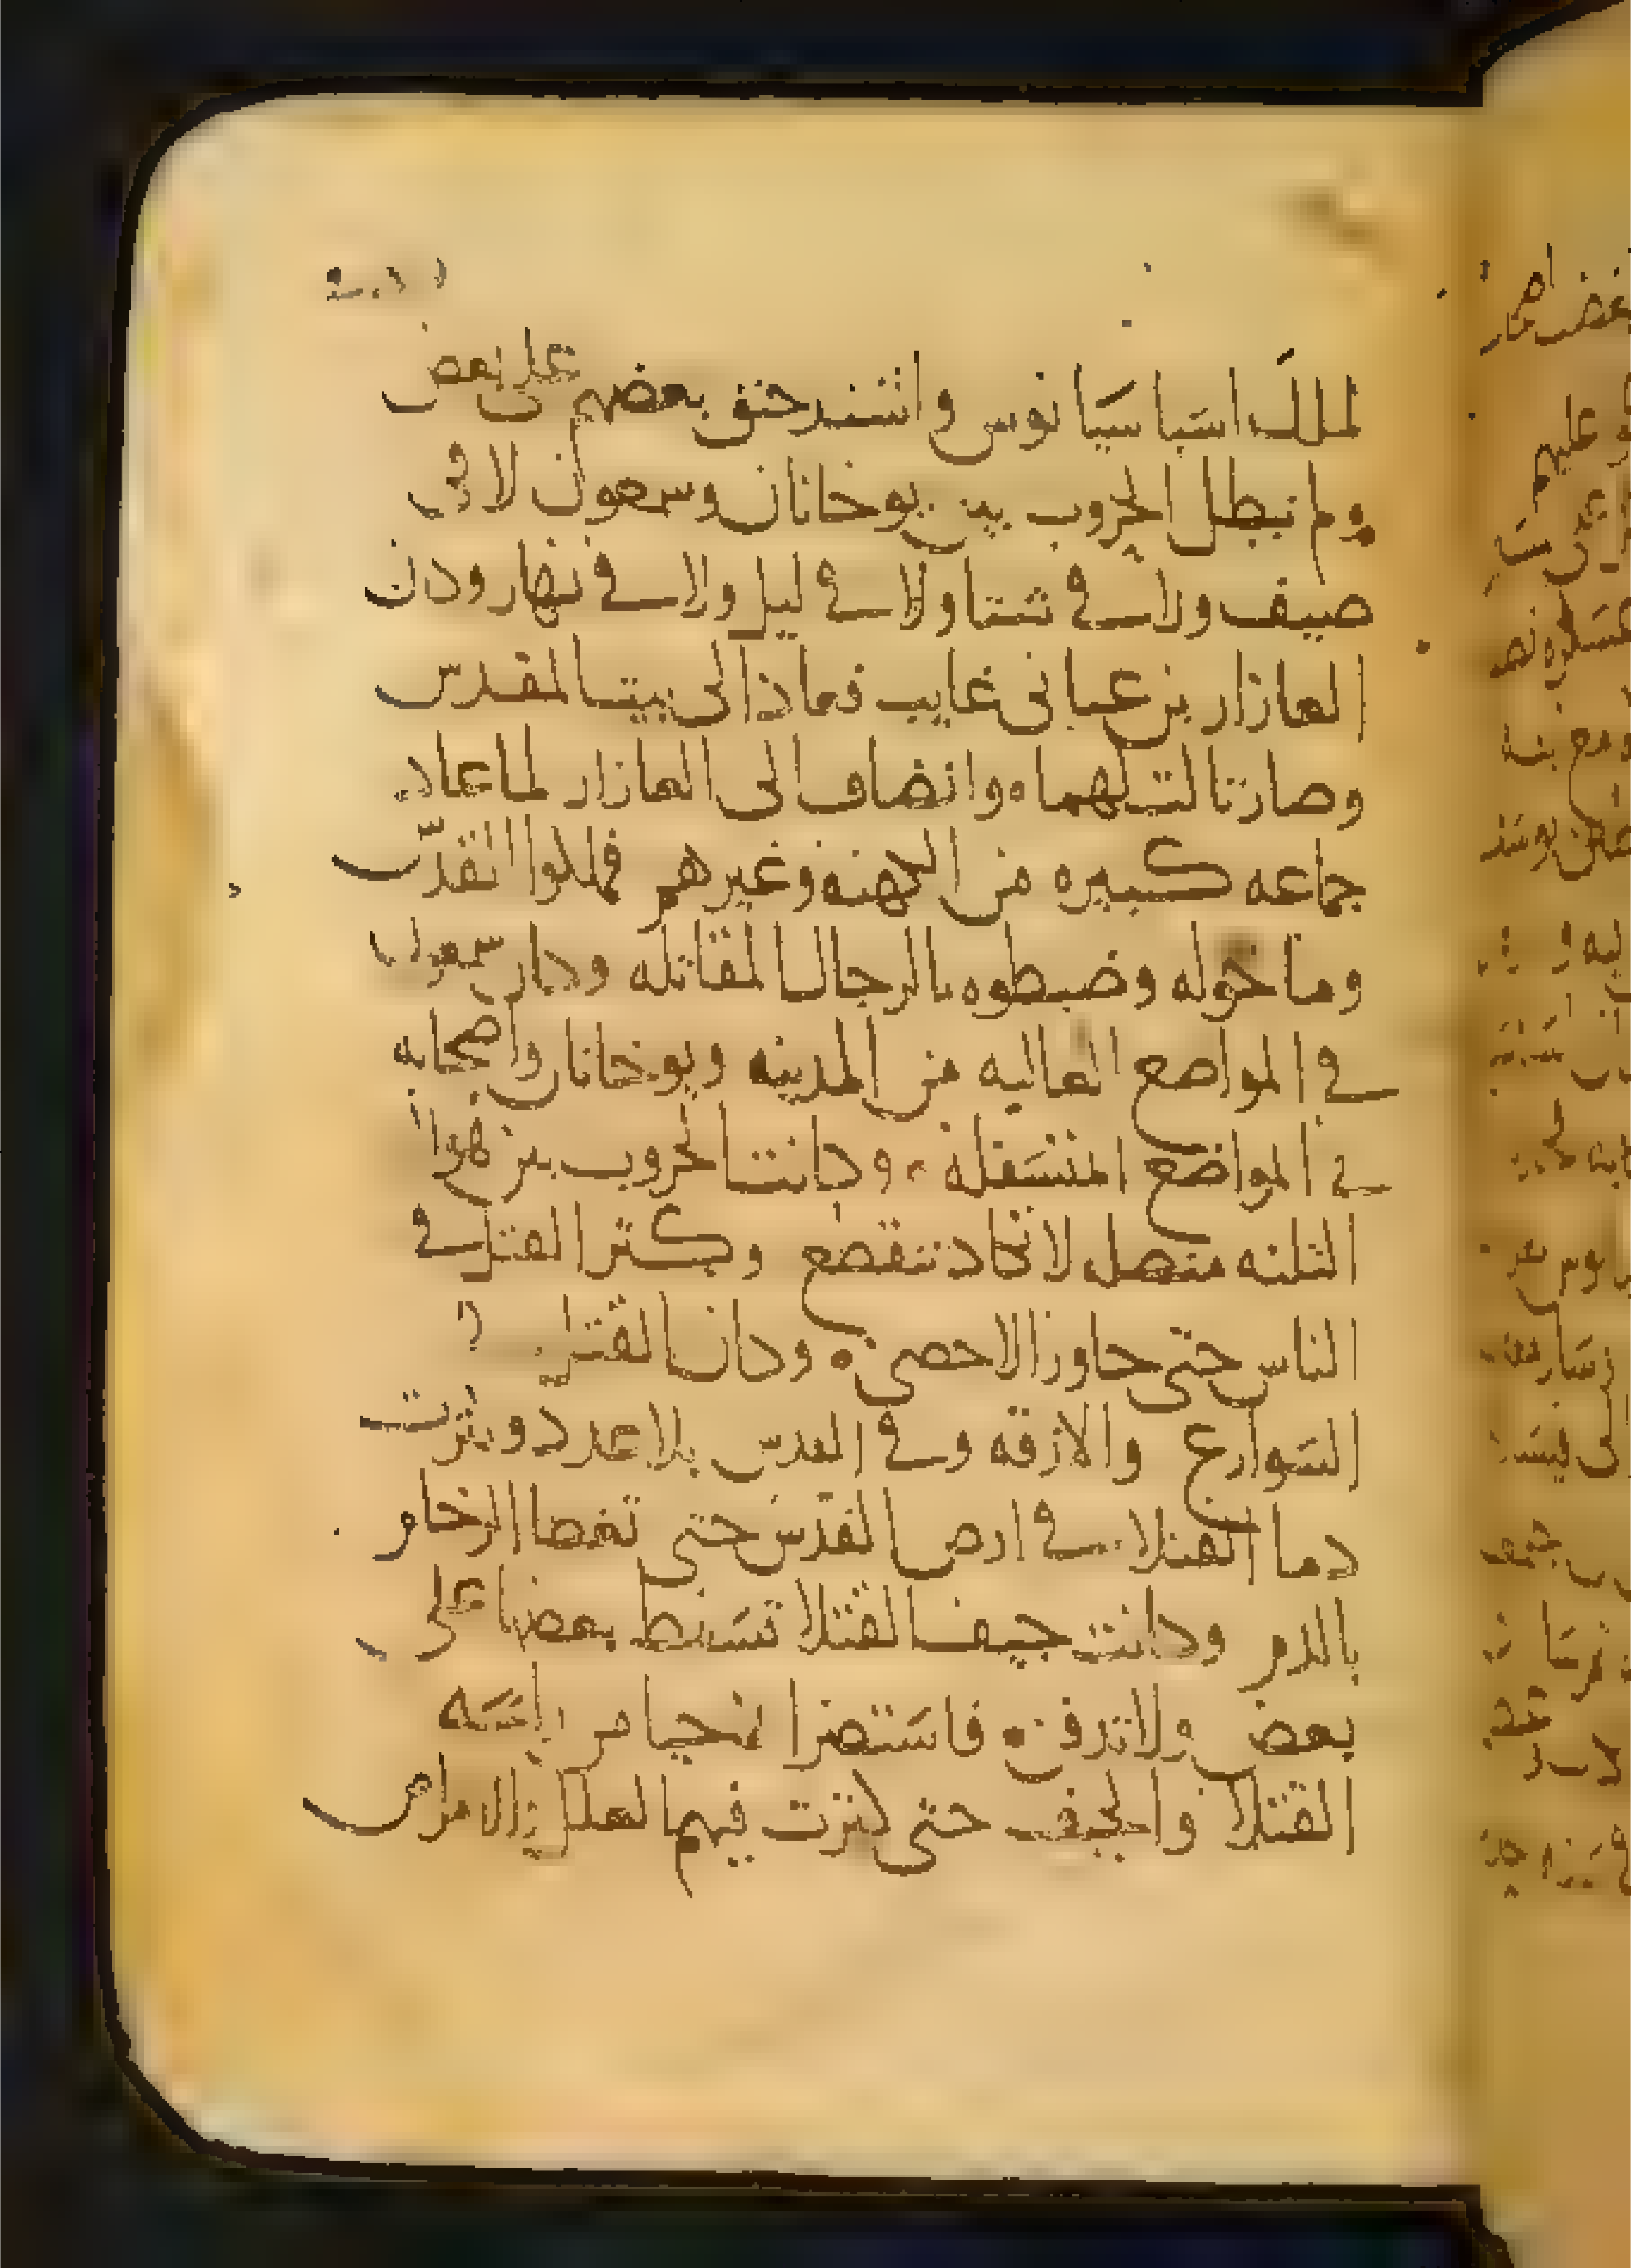 لملك اسباسيانوس واشتد حنق بعضهم على بعض
ولم تبطل الحروب بين يوحانان وسمعون لا في
صيف ولا في شتا ولا في ليل ولا في نهار وكان
العازار بن عناني غايب فعاد الى بيت المقدس
وصار ثالث لهما وانضاف الى العازار لما عاد
جماعه كبيره من الكهنه وغيرهم فملكوا القدس
وما حوله وضبطوه بالرجال المقاتله وصار سمعون
في المواضع العاليه من المدينه ويوحانان واصحابه
في المواضع المنسفله وكانت الحروب بين هوا
الثلثه متصل لا تكاد تنقطع وكثر القتل في
الناس حتى جاوز الاحصى وكان القتل
الشوارع والازقه وفي القدس بلا عدد وكثرت
دما القتلا في ارض القدس حتى تغطا الرخام
بالدم وكانت جيف القتلا تسقط بعضها على
بعض ولا تدفن فاستضر الاحيا من رايحه
القتلا والجيف حتى كثرت فيهم العلل والامراض